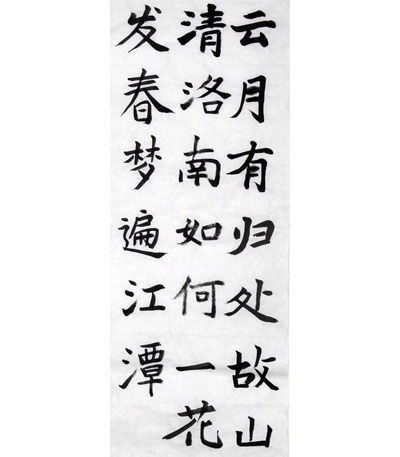 云月有归处故山
清洛南如何一花
发春梦遍江潭